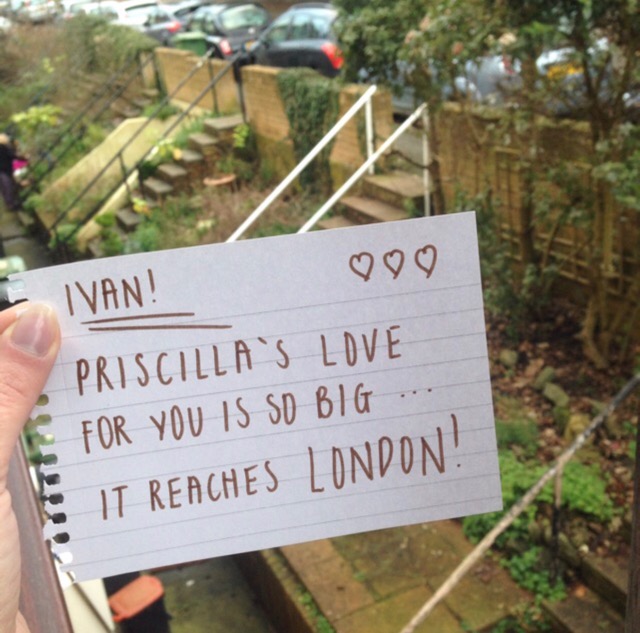 IVAN! ♡♡♡
PRISCILLA`S LOVE
FOR YOU IS SO BIG ...
IT REACHES LONDON!